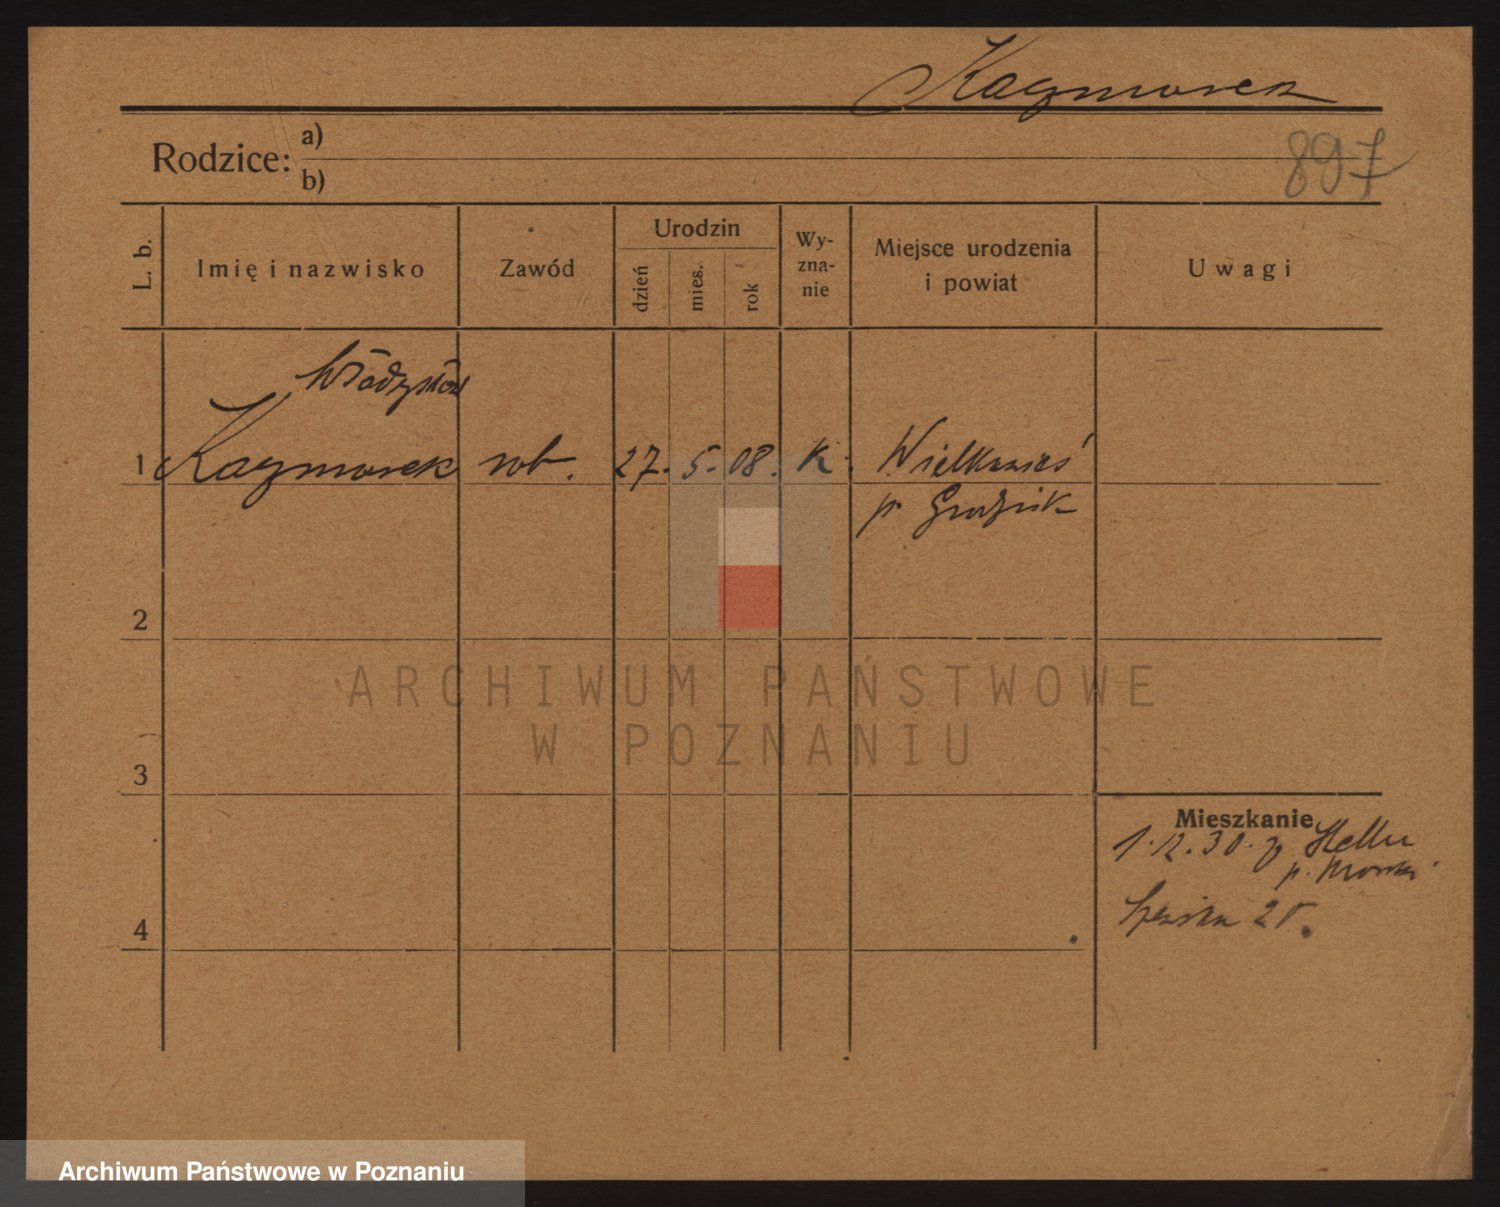 Kaczmarek
Rodzice: a)
b)
897
L. b.
Imię i nazwisko
Zawód
Urodzin
dzień
mies.
rok
Wy-
zna-
nie
Miejsce urodzenia
i powiat
Uwagi
Władysław
1 Kaczmarek rob. 27. 5. 08. K. Wielkawieś
p. Grodzisk
2
3
4
Mieszkanie
1.12.30. z
p.
ARCHIWUM PAŃSTWOWE
W POZNANIU
Archiwum Państwowe w Poznaniu